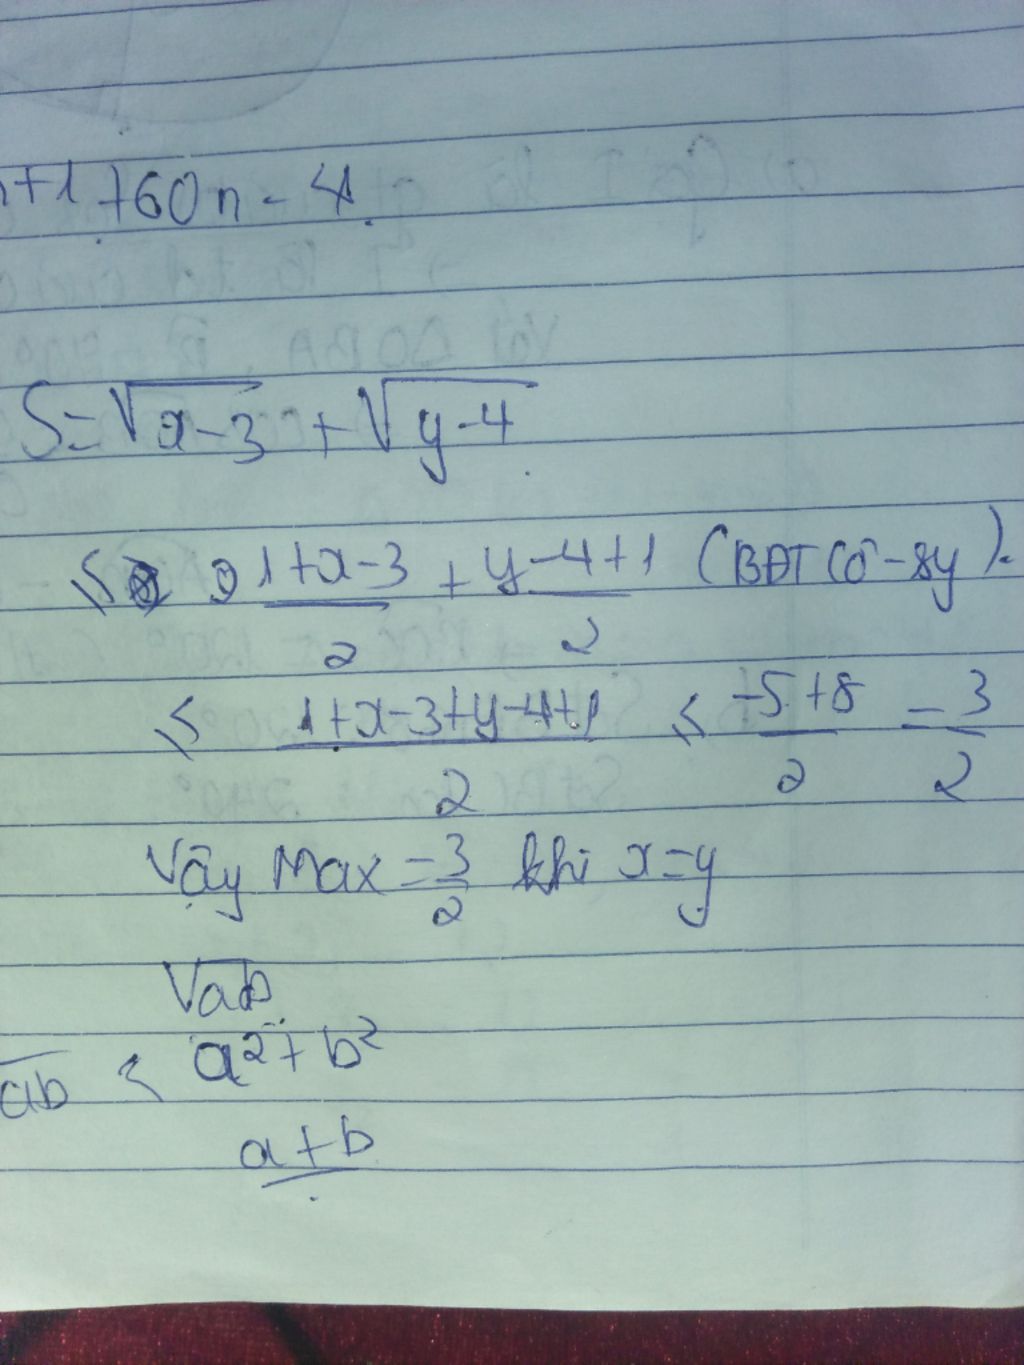 n+1 +60n - 4
S=√x-3 + √y-4
≤ 1+x-3/2 + y-4+1/2 (BĐT Cô-sy).
≤ 1+x-3+y-4+1/2 ≤ -5+8/2 = 3/2
Vậy Max = 3/2 khi x=y
√ab
ab ≤ a²+b²
a+b